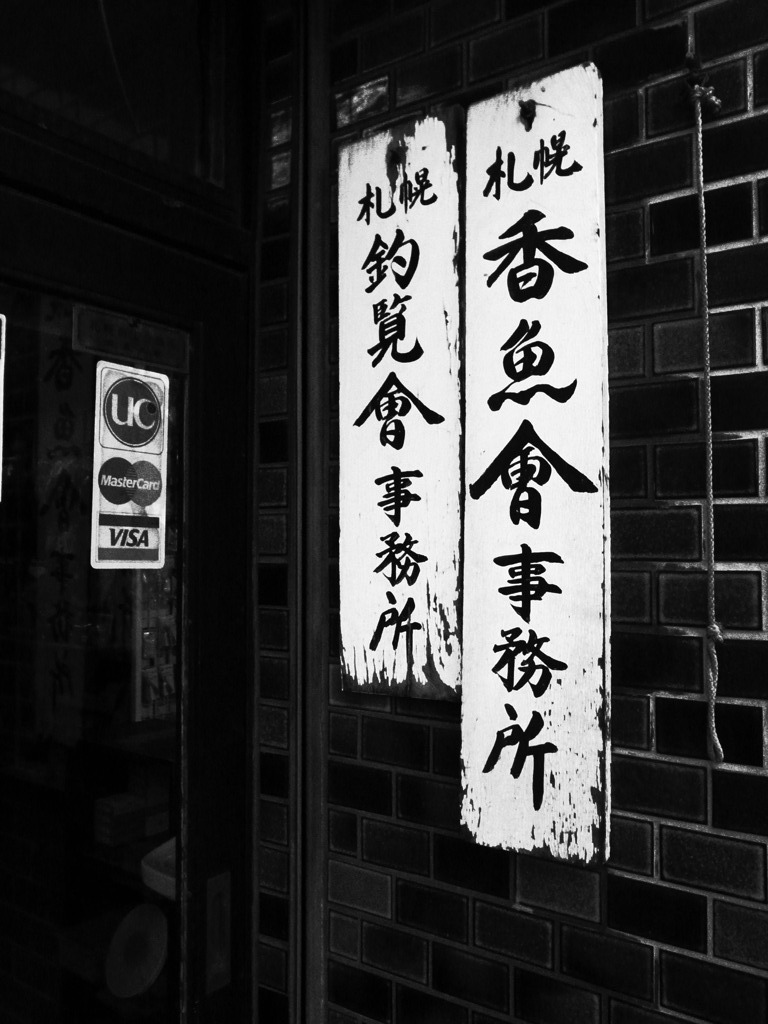 札幌
香魚會事務所
札幌
釣覧會事務所
UC
MasterCard
VISA